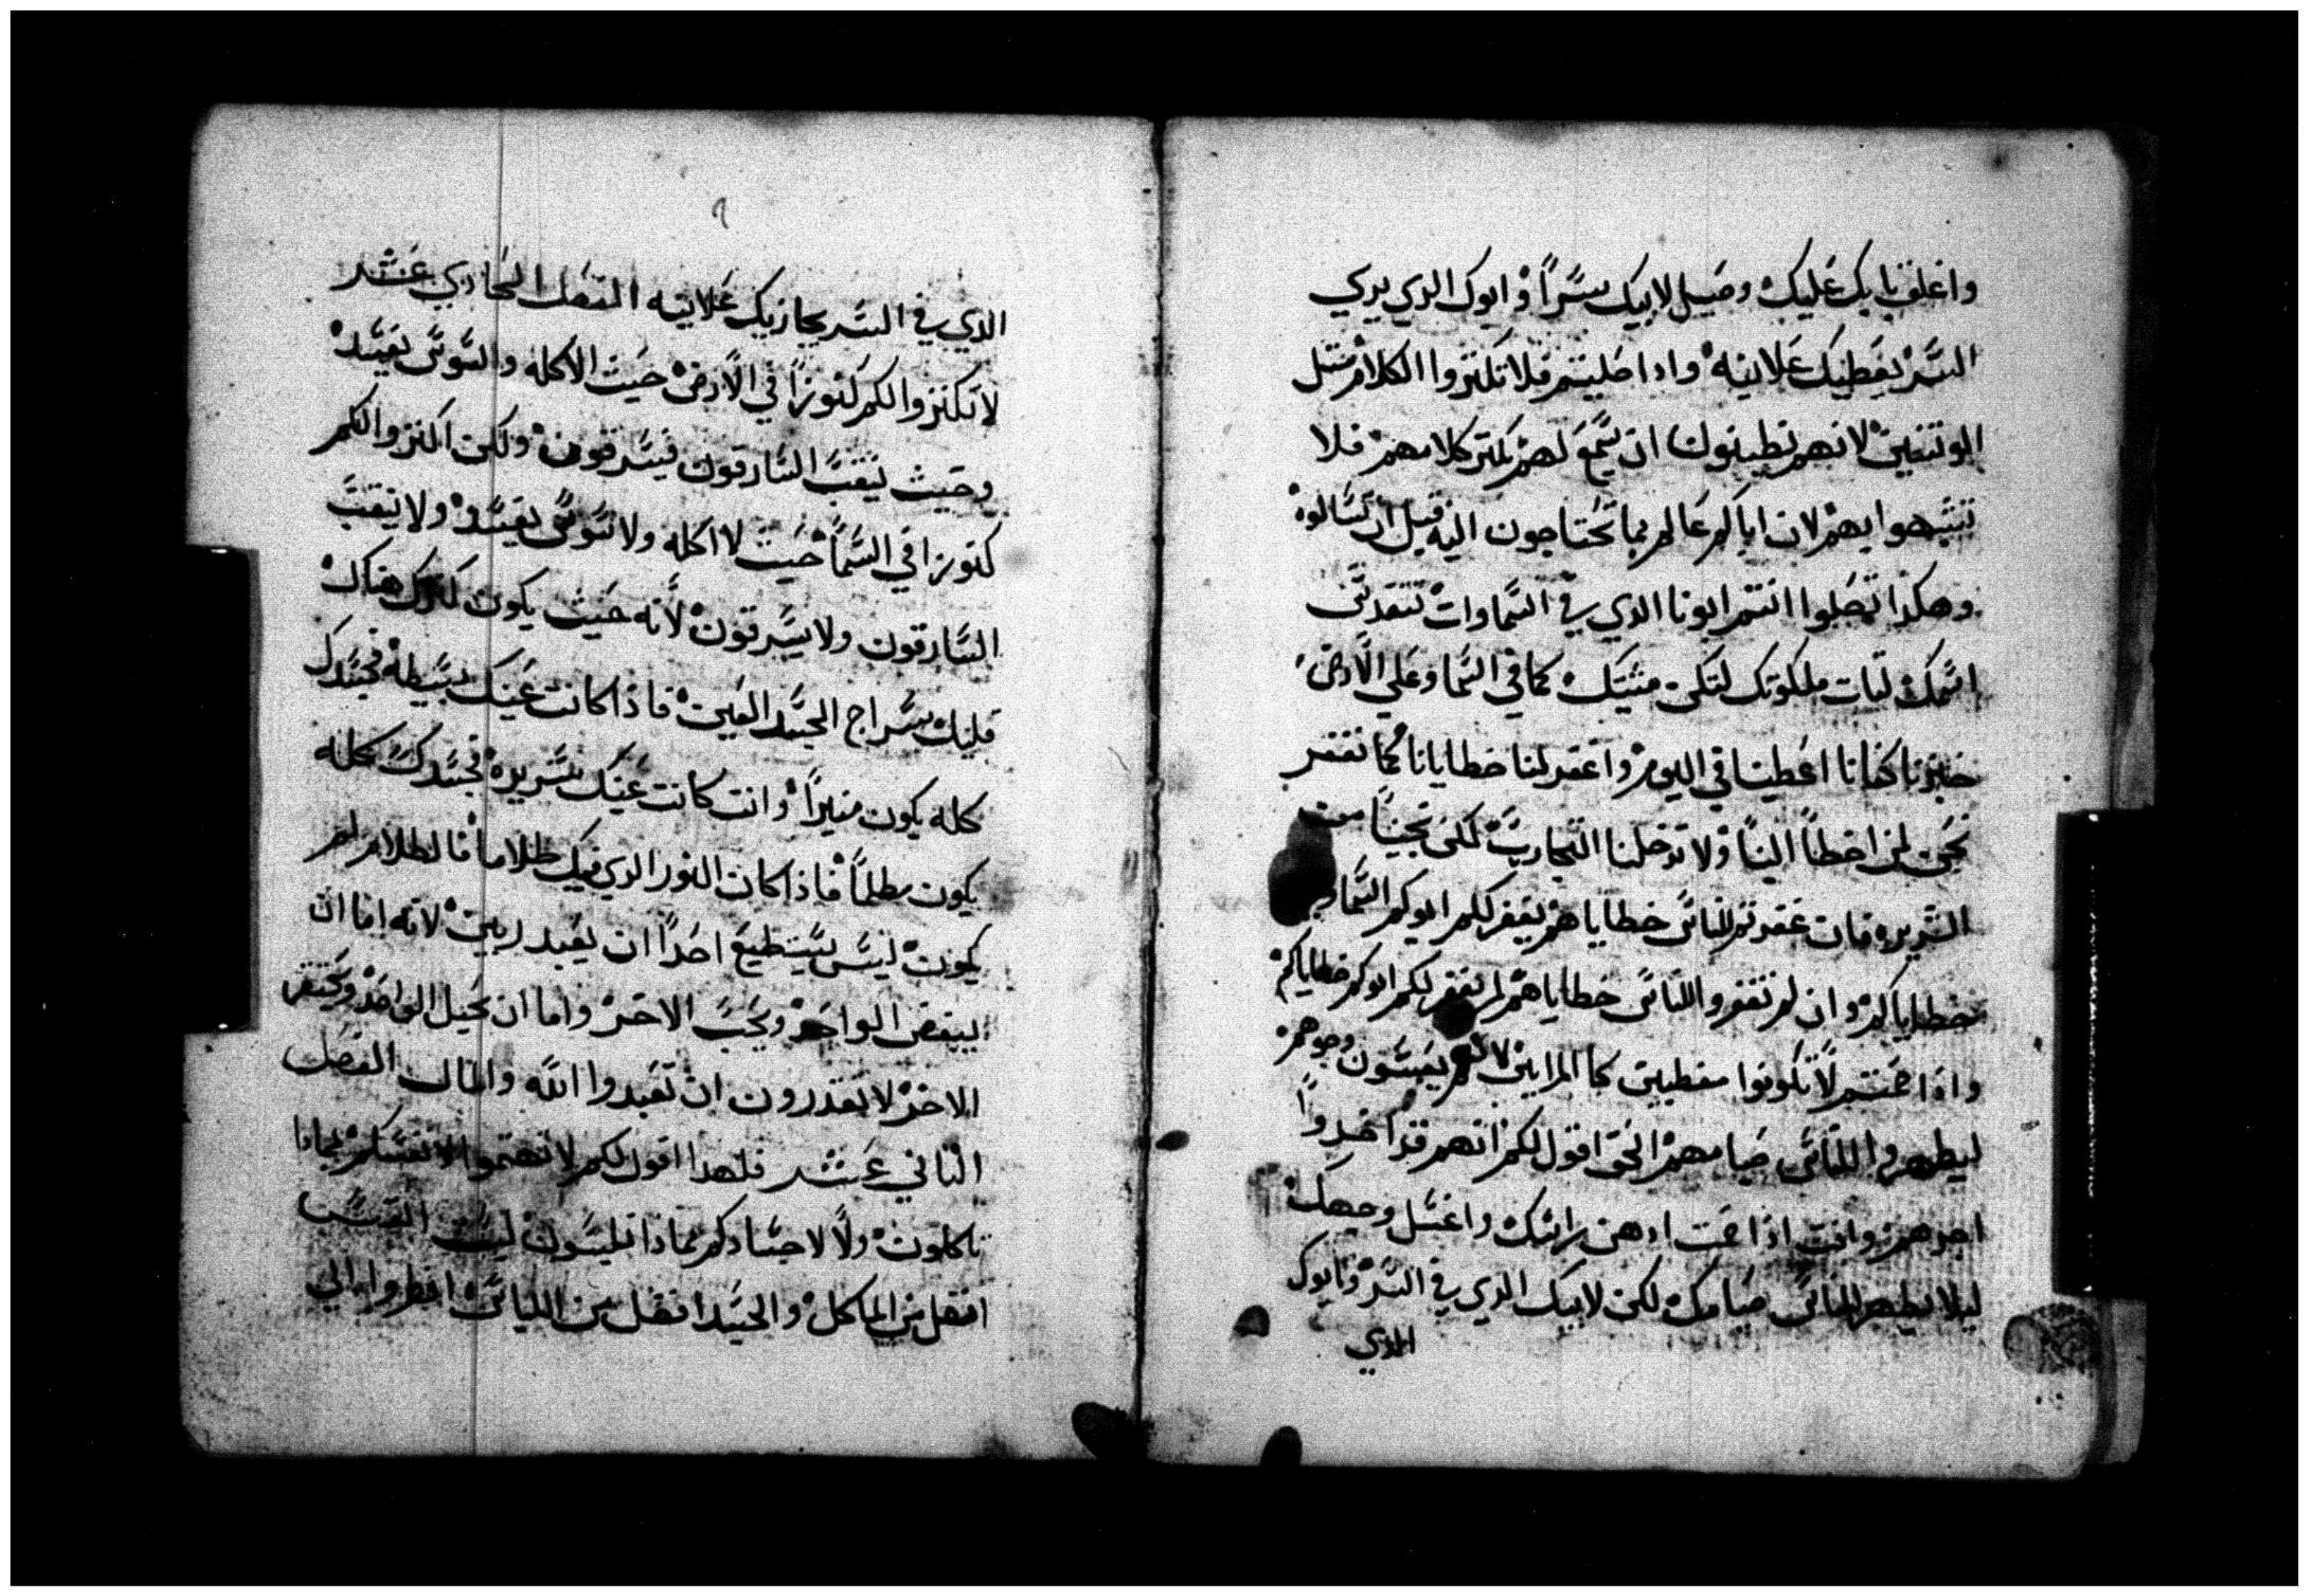 واغلق بابك عليك وصيل لابيك سرًا وابوك الدي يري
السر يعطيك علانيه وادا صليتم فلا تكتروا الكلام متل
الوتنيين لانهم يظينون ان يسمع لهم بكتر كلامهم فلا
تتشبهوا بهم لان اباكم عالم بما تحتاجون اليه قبل ان تسالوه
وهكدا تصلوا انتم ابونا الدي في السماوات تتقدس
اسمك تات ملكوتك لتكن مشيتك كما في السما وعلي الأرض
خبزنا كفانا اعطينا في اليوم واغفر لنا خطايانا كما نغفر
نحن لمن اخطأ الينا ولا تدخلنا التجارب لكن نجينا من
الشريره فان غفرتم للناس خطاياهم يغفر لكم ابوكم السماوي
خطاياكم وان لم تغفروا للناس خطاياهم لم يغفر لكم ابوكم خطاياكم
واذا صمتم لا تكونوا مغطبين كالمرايين لانهم يعبسون وجوههم
ليطهروا للناس صيامهم الحق اقول لكم انهم قد اخدوا
اجرهم وانت اذا صمت ادهن راسك واغسل وجهك
ليلا يظهر للناس صيامك لكن لابيك الدي في السر وابوك
الدي
٩
الدي في السر يجازيك علانيه الفصل الحادي عشر
لا تكنزوا لكم كنوزًا في الأرض حيث الاكله والسوس يفسد
وحيث ينقب السارقون فيسرقون ولكن اكنزوا لكم
كنوزا في السمأ حيث لا اكله ولا سوس يفسد ولا ينقب
السارقون ولا يسرقون لأنه حيث يكون كنزك هناك
قلبك سراج الجسد العين فاذا كانت عينك بسيطه فجسدك
كله يكون منيرًا وانت كانت عينك شريره فجسدك كله
يكون مظلمًا فاذا كان النور الدي فيك ظلاما فالظلام لم
يكون ليس يستطيع احدًا ان يعبد ربين لانه اما ان
يبغض الواحد ويحب الاخر واما ان يجيل الواحد ويحتقر
الاخر لا تقدرون ان تعبدوا الله والمال الفصل
التاني عشر فلهدا اقول لكم لا تهتموا لانفسكم بمادا
تاكلون ولا لاجسادكم بماذا تلبسون ليست النفس
افضل من الماكل والجسد افضل من اللباس انظروا الي